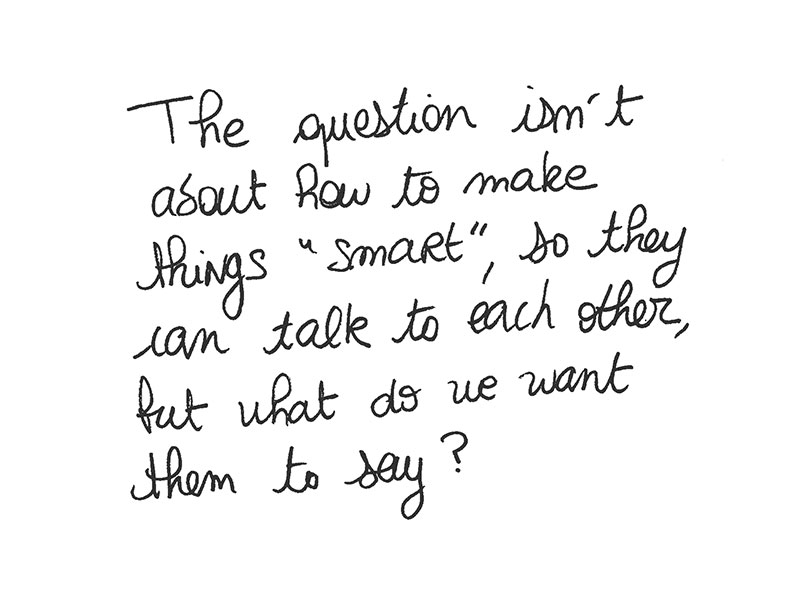 The question isn't
about how to make
things "smart", so they
can talk to each other,
but what do we want
them to say?